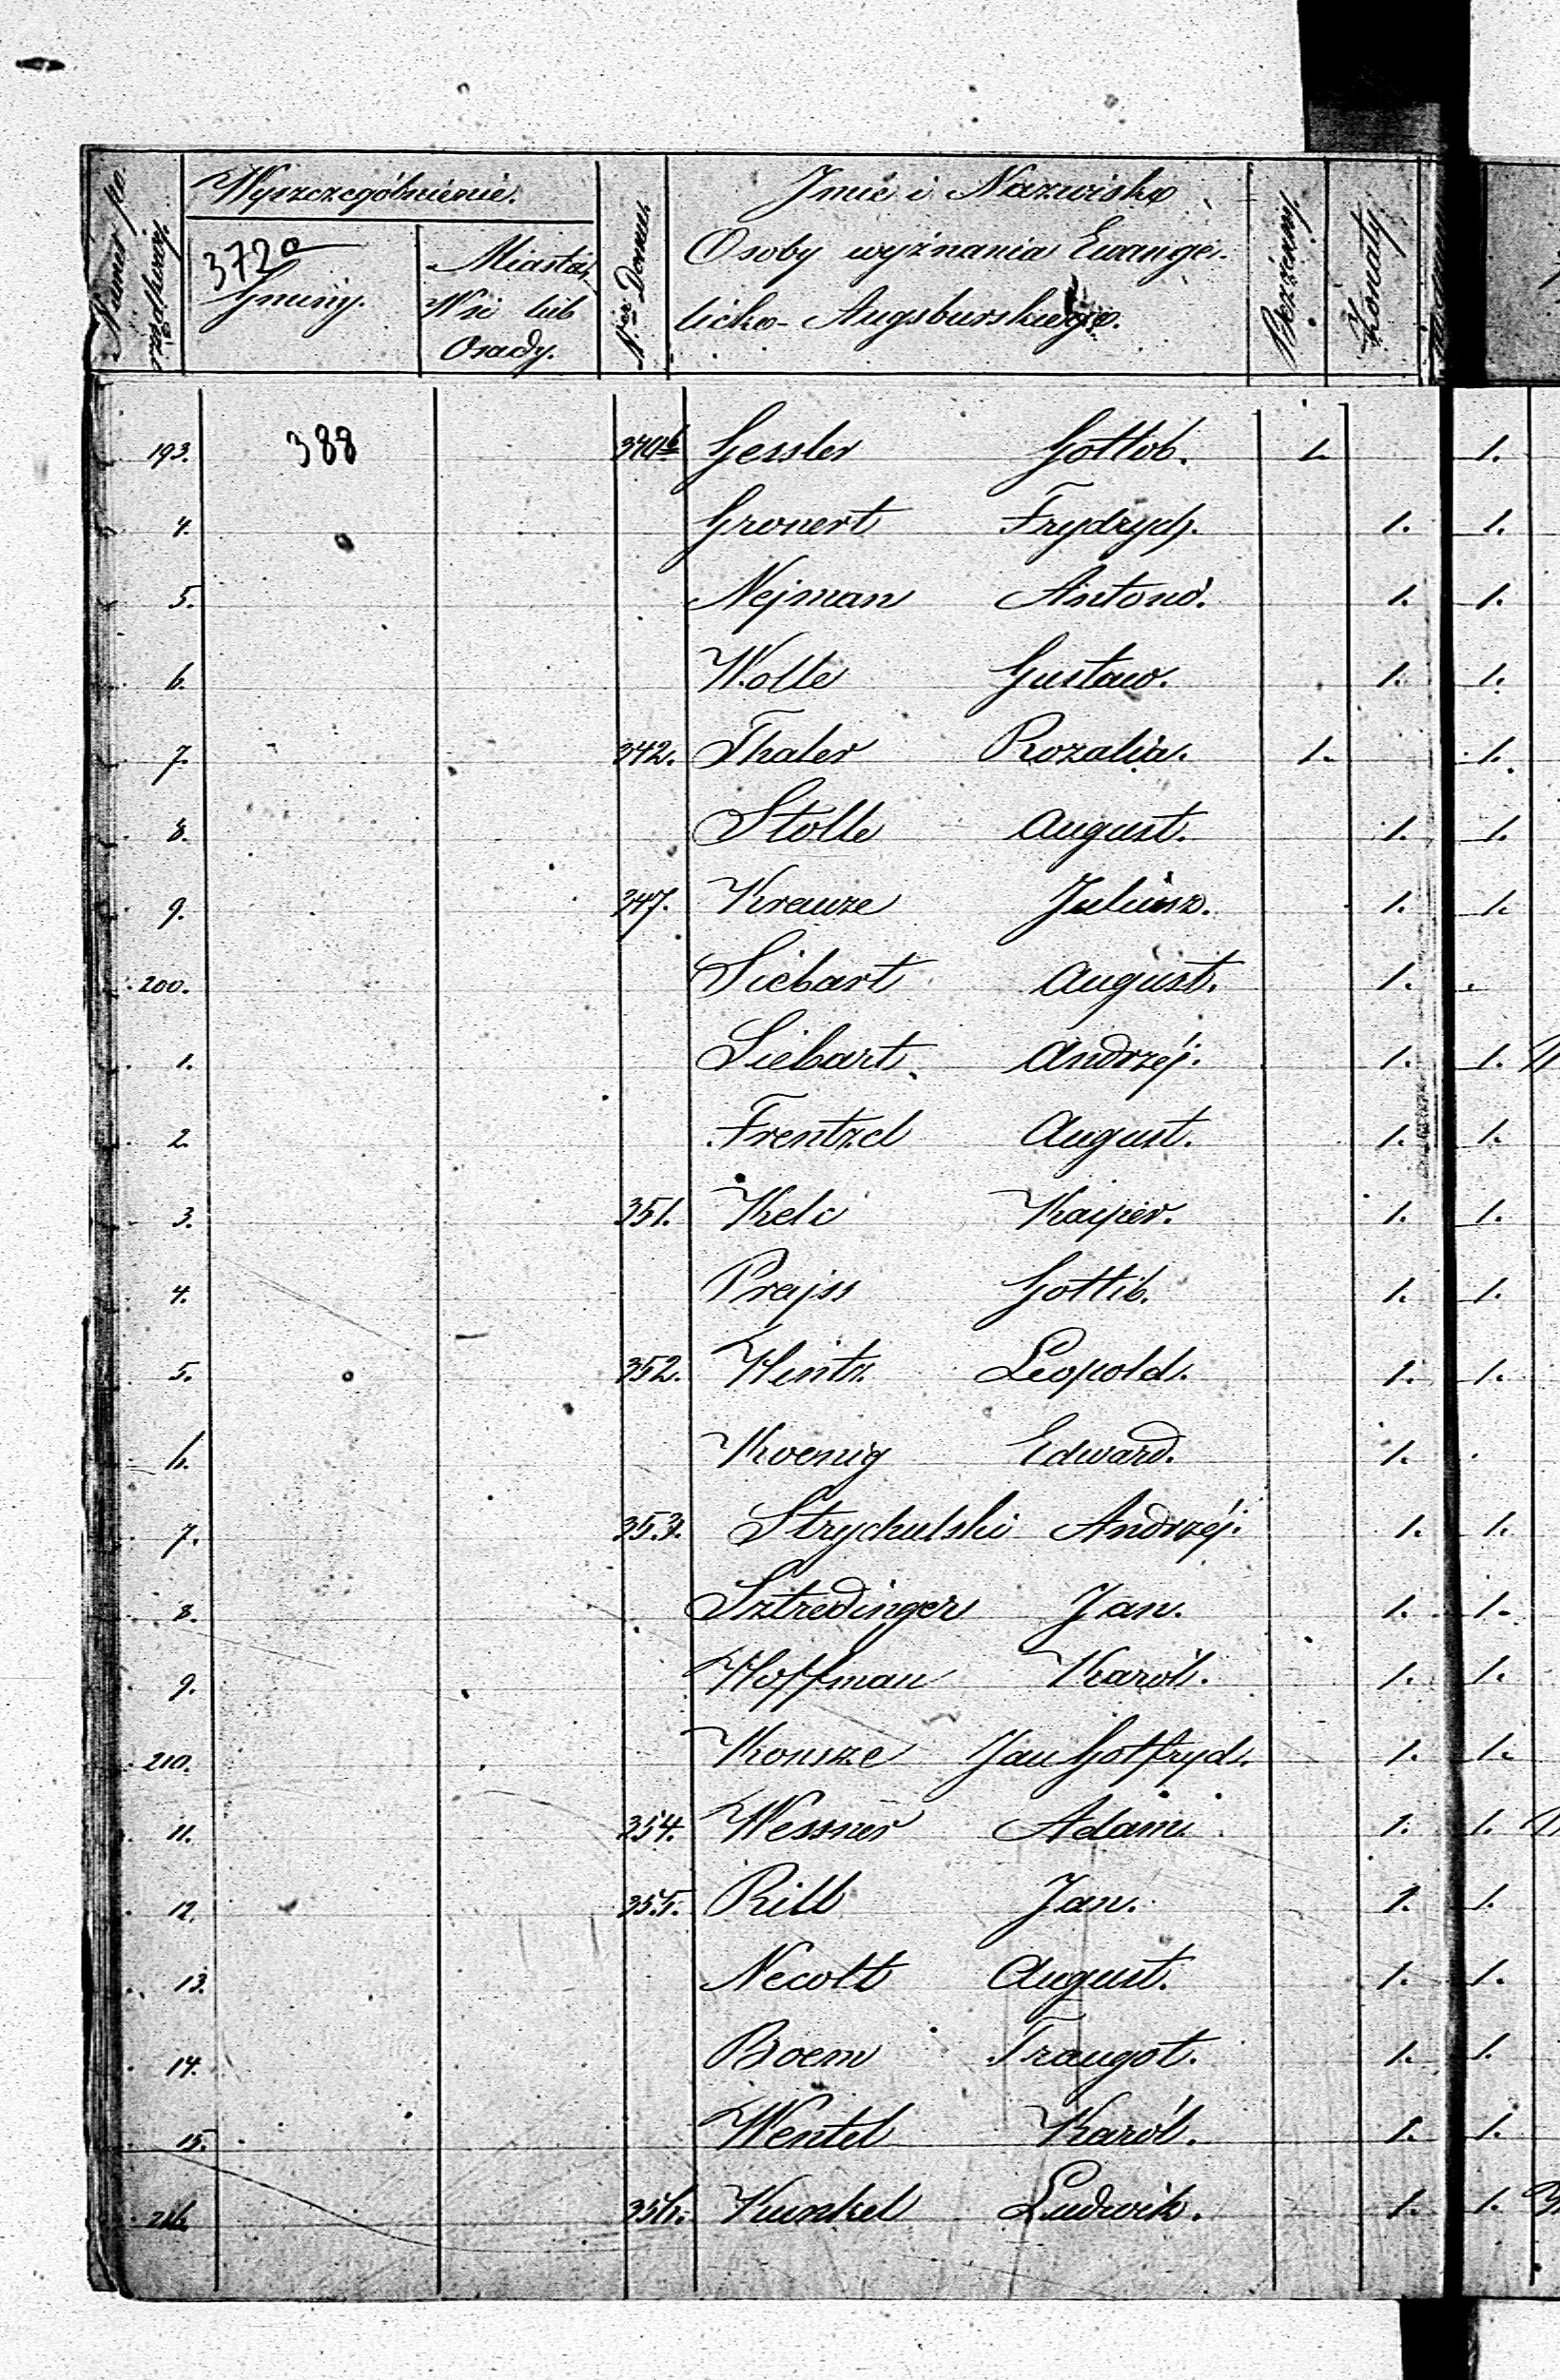 Numer po rządkowy
Wyszczególnienie.
372a
Gminy.
Miasta,
Wsi lub
Osady.
Nr Domu.
Jmie i Nazwisko
Osoby wyznania Ewange-
licko-Augsburskiego.
Bezżenny.
Żonaty.
193. 388 340b Gessler Gottlob. 1. 1.
4. Gronert Frydrych. 1. 1.
5. Nejman Antoni. 1. 1.
6. Wolle Gustaw. 1. 1.
7. 342. Thaler Rozalia. 1. 1.
8. Stolle August. 1. 1.
9. 347. Krauze Juliusz. 1. 1.
200. Siebart August. 1.
1. Siebart Andrzéj. 1. 1.
2. Frentzel August. 1. 1.
3. 351. Kelc Kasper. 1. 1.
4. Prajss Gottlib. 1. 1.
5. 352. Hintz Leopold. 1. 1.
6. Koenig Edward. 1.
7. 353. Strychulski Andrzéj. 1. 1.
8. Sztredinger Jan. 1. 1.
9. Hoffman Karól. 1. 1.
210. Konsze Jan Gotfryd. 1. 1.
11. 354. Wessner Adam. 1. 1.
12. 355. Rill Jan. 1. 1.
13. Necolt August. 1. 1.
14. Boem Traugot. 1. 1.
15. Wentel Karól. 1. 1.
216. 356. Kunkel Ludwik. 1. 1.